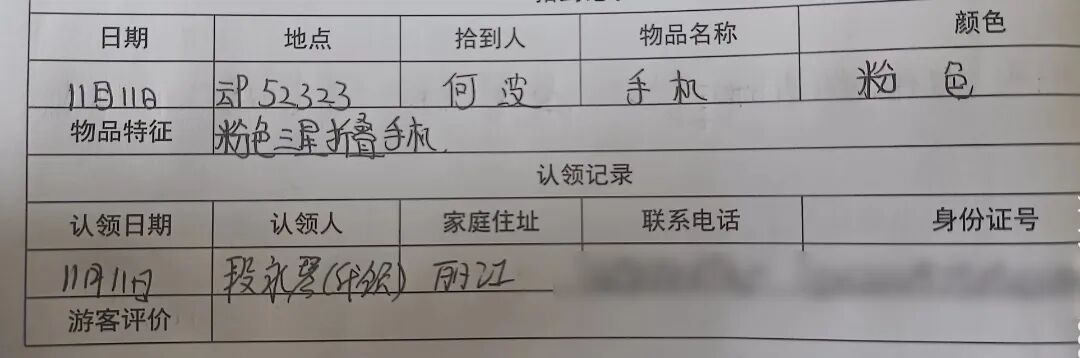 日期 地点 拾到人 物品名称 颜色
11月11日 云P 52323 何波 手机 粉色
物品特征 粉色三星折叠手机.
认领记录
认领日期 认领人 家庭住址 联系电话 身份证号
11月11日 段永(代领) 丽江
游客评价